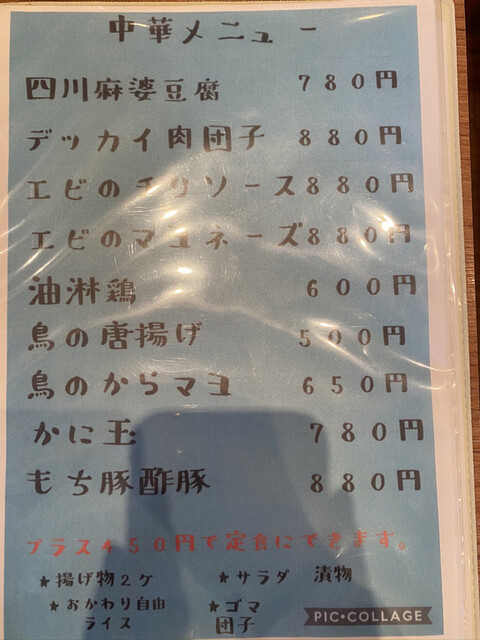 中華メニュー
四川麻婆豆腐 780円
デッカイ肉団子 880円
エビのチリソース 880円
エビのマヨネーズ 880円
油淋鶏 600円
鳥の唐揚げ 500円
鳥のからマヨ 650円
かに玉 780円
もち豚酢豚 880円
プラス450円で定食にできます。
★揚げ物2ケ ★サラダ 漬物
★おかわり自由 ★ゴマ
ライス 団子
PIC•COLLAGE